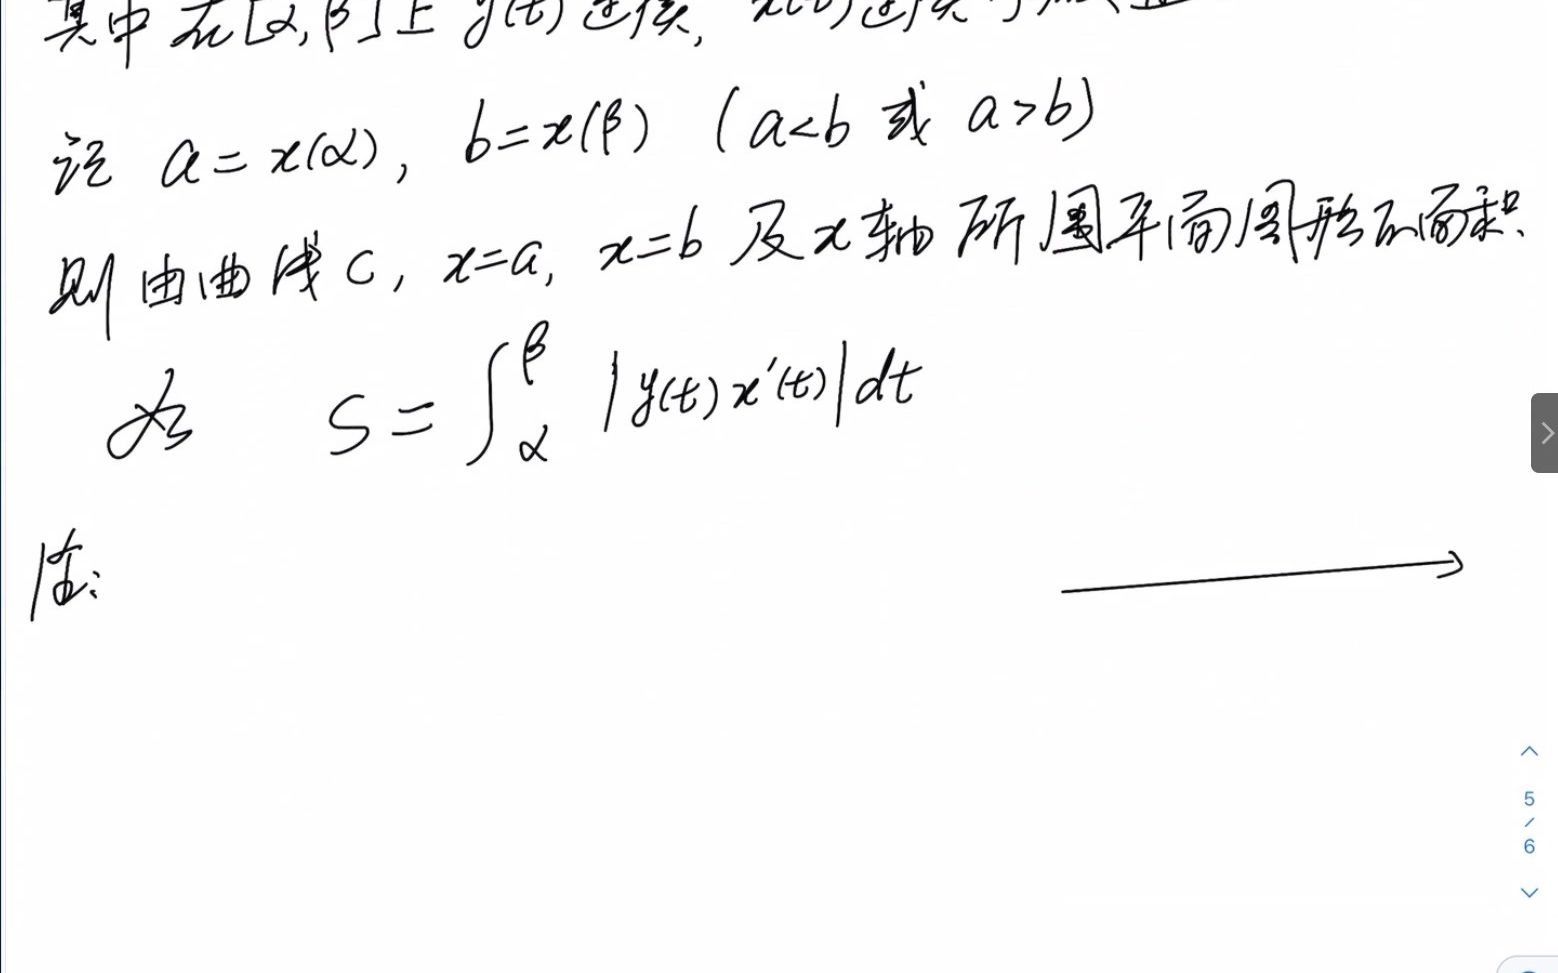 其中在[α,β]上 y(t)连续, x(t)连续可微
记 a=x(α), b=x(β) (a<b 或 a>b)
则由曲线C, x=a, x=b 及x轴所围平面图形的面积
为 S=∫_α^β |y(t)x'(t)|dt
注:
5
/
6